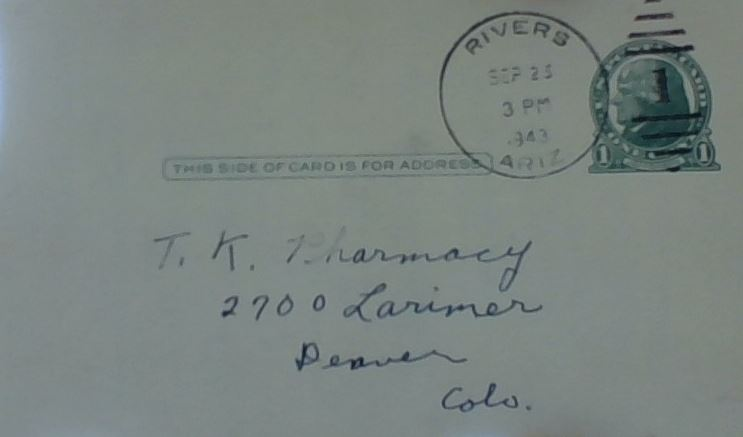 RIVERS
SEP 23
3 PM
1943
ARIZ
1
1 1
THIS SIDE OF CARD IS FOR ADDRESS
T. K. Pharmacy
2700 Larimer
Denver
Colo.